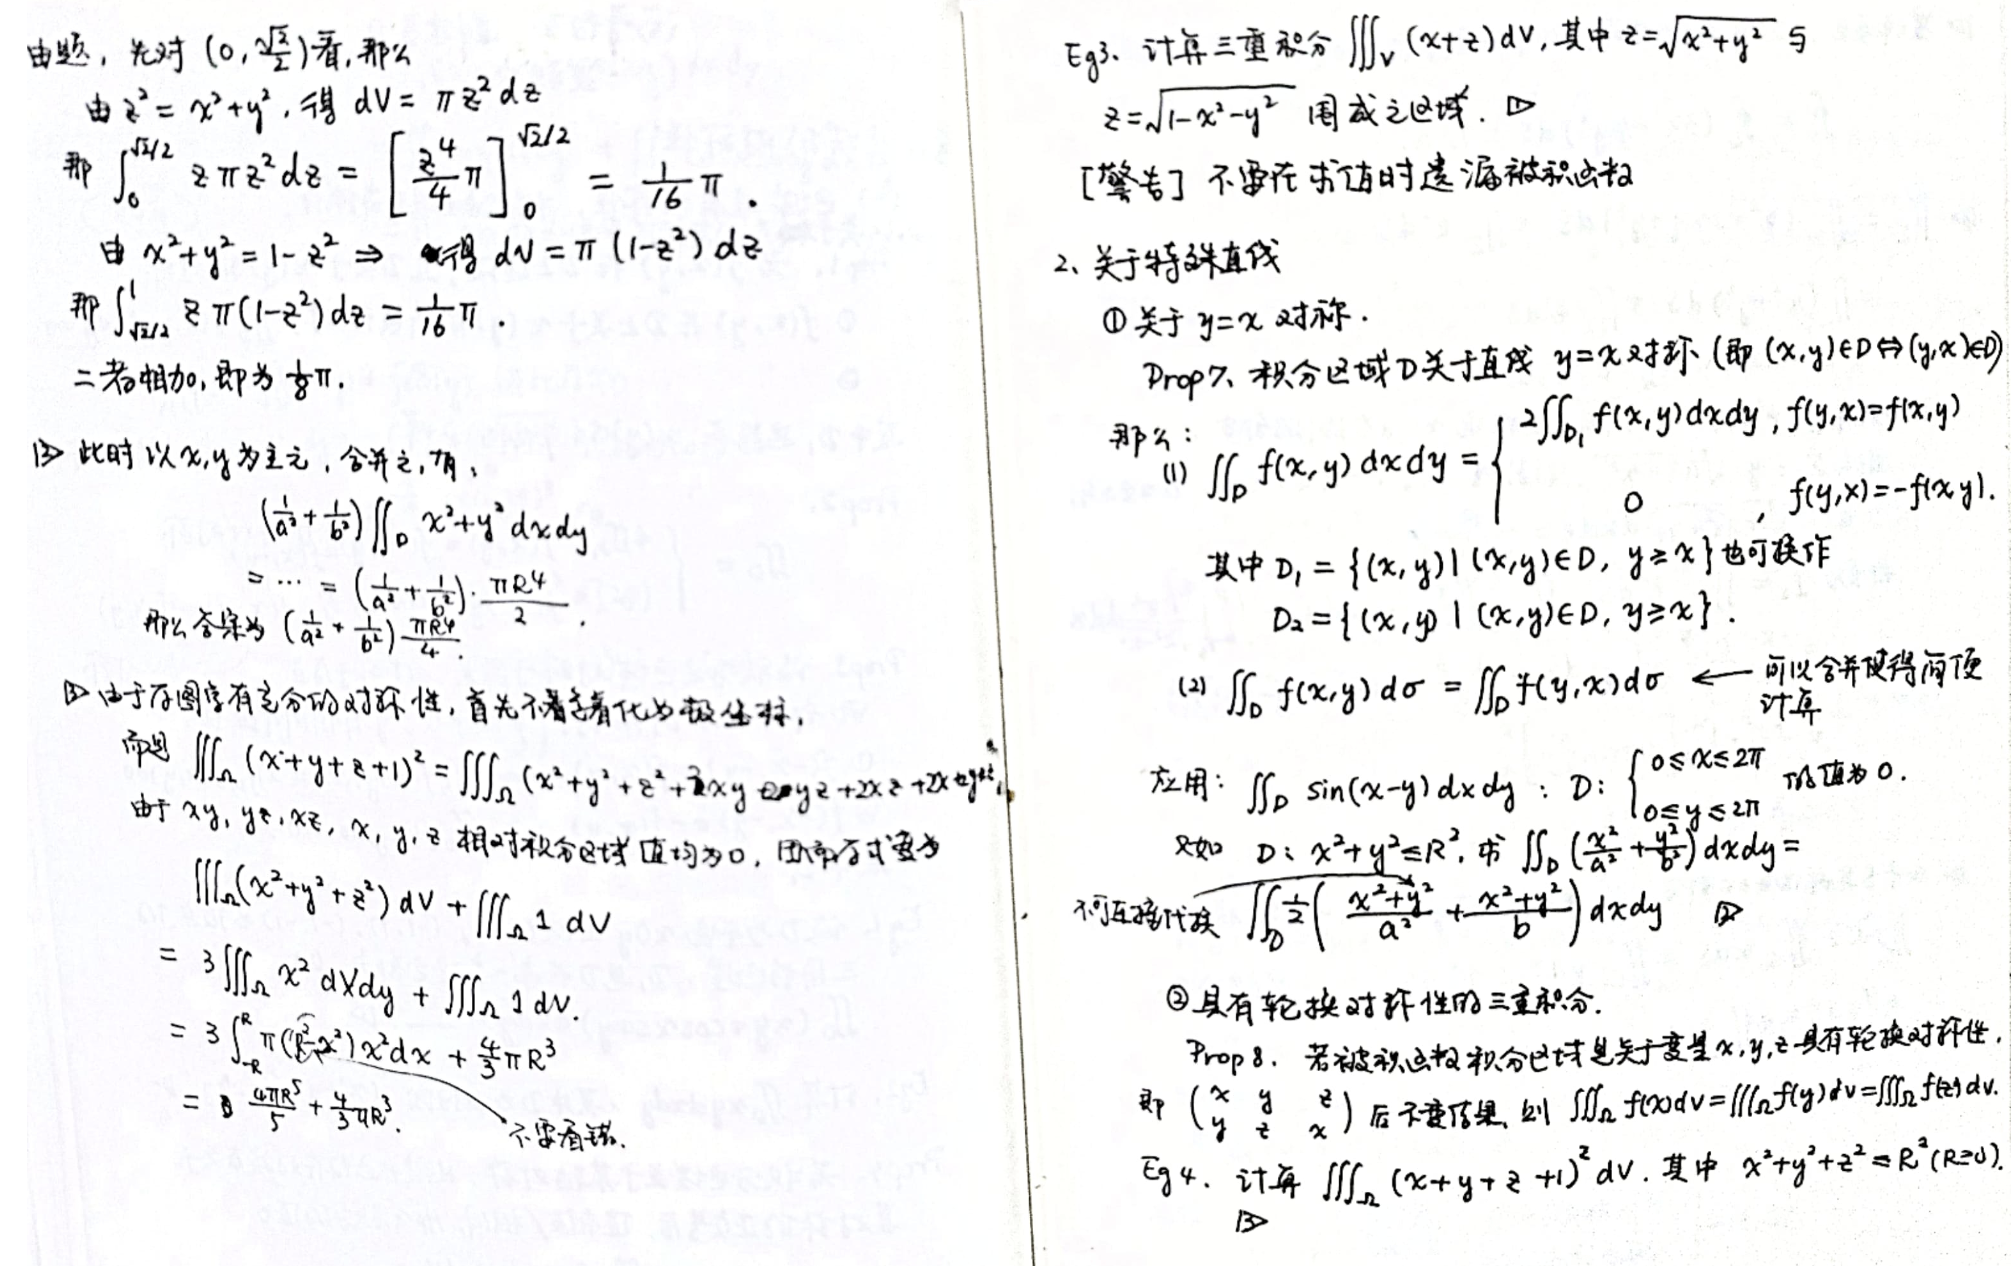 由题，先对 (0, √2/2) 看，那么
由 z² = x²+y²，得 dV = πz² dz
那 ∫₀^{√2/2} zπz² dz = [z⁴/4 π]₀^{√2/2} = 1/16 π.
由 x²+y² = 1-z² ⇒ 得 dV = π(1-z²) dz
那 ∫_{√2/2}^1 zπ(1-z²) dz = 1/16 π.
二者相加，即为 1/8 π.
▷ 此时以 x,y 为主元，合并之，有，
(1/a²+1/b²)∬_D x²+y² dxdy
= … = (1/a²+1/b²)·πR⁴/2.
那么答案为 (1/a²+1/b²) πR⁴/4.
▷ 由于存图字有充分的对称性，首先不着急着化为极坐标，
而是 ∭_Ω (x+y+z+1)² = ∭_Ω (x²+y²+z²+2xy 2yz+2xz+2x
由于 xy, yz, xz, x, y, z 相对积分区域值均为0，因而原式变为
∭_Ω (x²+y²+z²) dV + ∭_Ω 1 dV
= 3∭_Ω x² dxdy + ∭_Ω 1 dV.
= 3∫_{-R}^R π(R²-x²)x² dx + 4/3 πR³
= 4πR⁵/5 + 4/3 πR³.
不要看错.
Eg3. 计算三重积分 ∭_V (x+z) dV, 其中 z=√(x²+y²) 与
z=√(1-x²-y²) 围成之区域. ▷
[警告] 不要在求值时遗漏被积函数
2、关于特殊直线
① 关于 y=x 对称.
Prop7、积分区域D关于直线 y=x 对称 (即 (x,y)∈D⇔(y,x)∈D)
那么:
(1) ∬_D f(x,y) dxdy = { 2∬_{D₁} f(x,y) dxdy, f(y,x)=f(x,y)
0, f(y,x)=-f(x,y).
其中 D₁ = {(x,y) | (x,y)∈D, y≥x} 也可换作
D₂ = {(x,y) | (x,y)∈D, y≥x}.
(2) ∬_D f(x,y) dσ = ∬_D f(y,x) dσ ← 可以合并使得简便
计算
应用: ∬_D sin(x-y) dxdy : D: { 0≤x≤2π
0≤y≤2π 的值为0.
又如 D: x²+y²≤R², 求 ∬_D (x²/a²+y²/b²) dxdy =
不可直接代换 ∬_D 1/2 ((x²+y²)/a² + (x²+y²)/b) dxdy ▷
② 具有轮换对称性的三重积分.
Prop 8. 若被积函数积分区域是关于变量 x,y,z 具有轮换对称性,
即 (x y z
y z x) 后不变结果, 则 ∭_Ω f(x) dv = ∭_Ω f(y) dv = ∭_Ω f(z) dv.
Eg 4. 计算 ∭_Ω (x+y+z+1)² dV. 其中 x²+y²+z² ≤ R² (R≥0).
▷